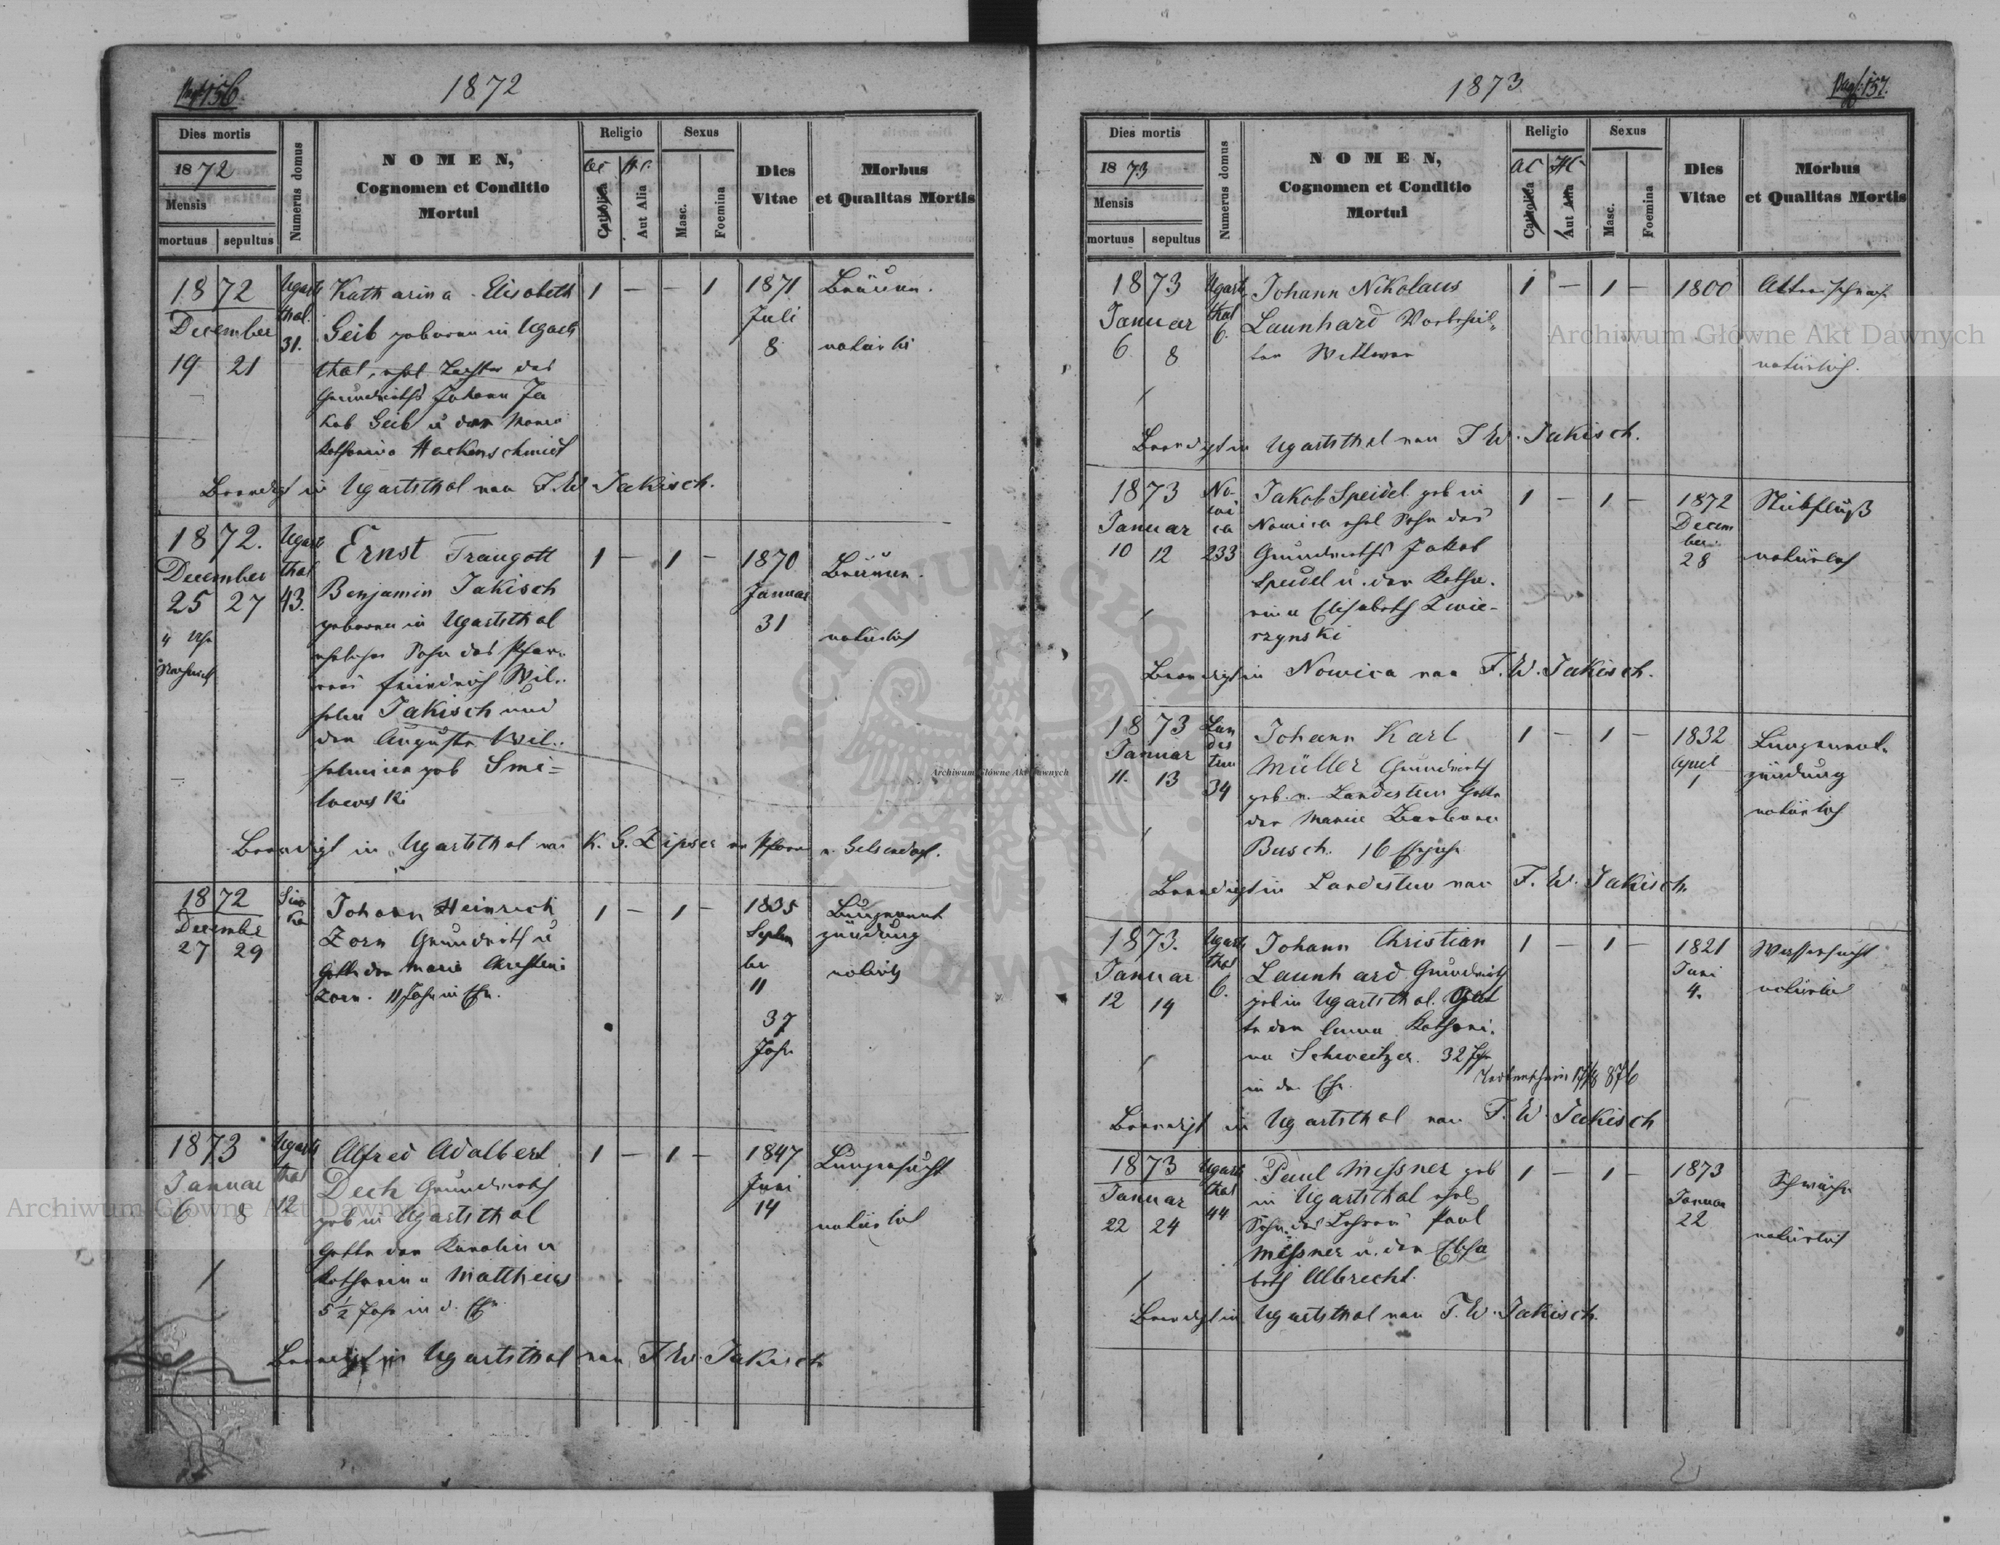 Pag. 156.
1872
Dies mortis
1872
Mensis
mortuus
sepultus
Numerus domus
NOMEN,
Cognomen et Conditio
Mortui
Religio
AC
HC
Catholica
Aut Alia
Sexus
Masc.
Foemina
Dies
Vitae
Morbus
et Qualitas Mortis
1872
December
19 21
Ugarts
thal
31.
Katharina Elisabeth
Geib geboren in Ugarts
thal, ehel Tochter des
Grundwirths Johann Ja
kob Geib u der Maria
Katharina Hackenschmidt
1 — — 1
1871
Juli
8
Bräune.
natürlich
Beerdigt in Ugartsthal von F. W. Jakisch.
1872.
December
25 27
4 Uhr
Nachmitt
Ugarts
thal
43.
Ernst Traugott
Benjamin Jakisch
geboren in Ugartsthal
ehelicher Sohn des Pfar-
rers Friedrich Wil-
helm Jakisch und
der Auguste Wil-
helmine geb Smi-
lowski
1 — 1 —
1870
Januar
31
Bräune.
natürlich
Beerdigt in Ugartsthal von K. G. Zipser Pfarrer v. Gelsendorf.
1872
December
27 29
Siw
ka
Johann Heinrich
Zorn Grundwirth u
Gatte der Maria Christine
Zorn. 11 Jahr in Ehe.
1 — 1 —
1835
Septem
ber
11
37
Jahr
Lungenent
zündung
natürlich
1873
Januar
6 8
Ugarts
thal
12
Alfred Adalbert
Dech Grundwirth
geb in Ugartsthal
Gatte der Karolina
Katharina Mattheus
5 1/2 Jahr in d. Ehe
1 — 1 —
1847
Juni
14
Lungensucht
natürlich
Beerdigt in Ugartsthal von F. W. Jakisch
Pag. 157.
1873
Dies mortis
1873
Mensis
mortuus
sepultus
Numerus domus
NOMEN,
Cognomen et Conditio
Mortui
Religio
AC
HC
Catholica
Aut Alia
Sexus
Masc.
Foemina
Dies
Vitae
Morbus
et Qualitas Mortis
1873
Januar
6 8
Ugarts
thal
6.
Johann Nikolaus
Launhard
Wittwer
1 — 1 —
1800
Altersschwäche
natürlich.
Beerdigt in Ugartsthal von F. W. Jakisch.
1873
Januar
10 12
No-
wi
ca
233
Jakob Speidel geb in
Nowica ehel Sohn des
Grundwirths Jakob
Speidel u. der Katha-
rina Elisabeth Zwie-
rzynski
1 — 1 —
1872
Decem
ber
28
Stickfluß
natürlich
Beerdigt in Nowica von F. W. Jakisch.
1873
Januar
11. 13
Lan
des
treu
34
Johann Karl
Müller Grundwirth
geb. in Landestreu Gatte
der Maria Barbara
Busch. 16 Ehejahre
1 — 1 —
1832
April
1
Lungenent-
zündung
natürlich
Beerdigt in Landestreu von F. W. Jakisch
1873.
Januar
12 14
Ugarts
thal
6.
Johann Christian
Launhard Grundwirth
geb in Ugartsthal. Gat
te der Anna Kathari-
na Schweitzer. 32 Jahr
in der Ehe.
Todtenschein 876
1 — 1 —
1821
Juni
4.
Wassersucht
natürlich
Beerdigt in Ugartsthal von F. W. Jakisch
1873
Januar
22 24
Ugarts
thal
44
Paul Messner geb
in Ugartsthal ehel
Sohn des Lehrers Paul
Messner u. der Elisa
beth Albrecht.
1 — 1 —
1873
Januar
22
Schwäche
natürlich
Beerdigt in Ugartsthal von F. W. Jakisch.
Archiwum Główne Akt Dawnych
Archiwum Główne Akt Dawnych
Archiwum Główne Akt Dawnych